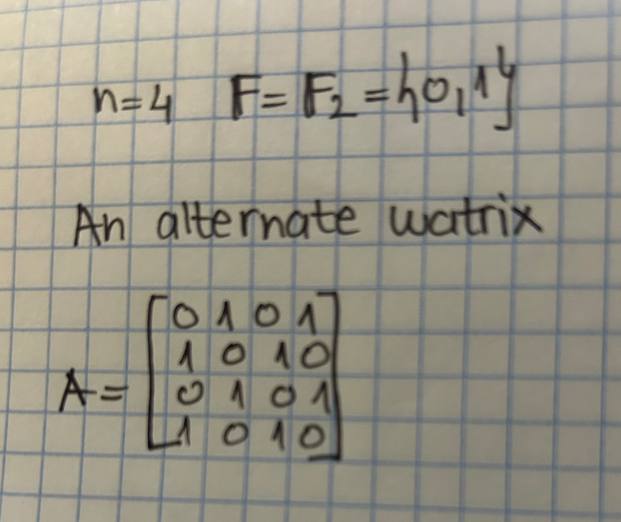 n=4 F=F₂={0,1}
An alternate watrix
0 1 0 1
1 0 1 0
A= 0 1 0 1
1 0 1 0